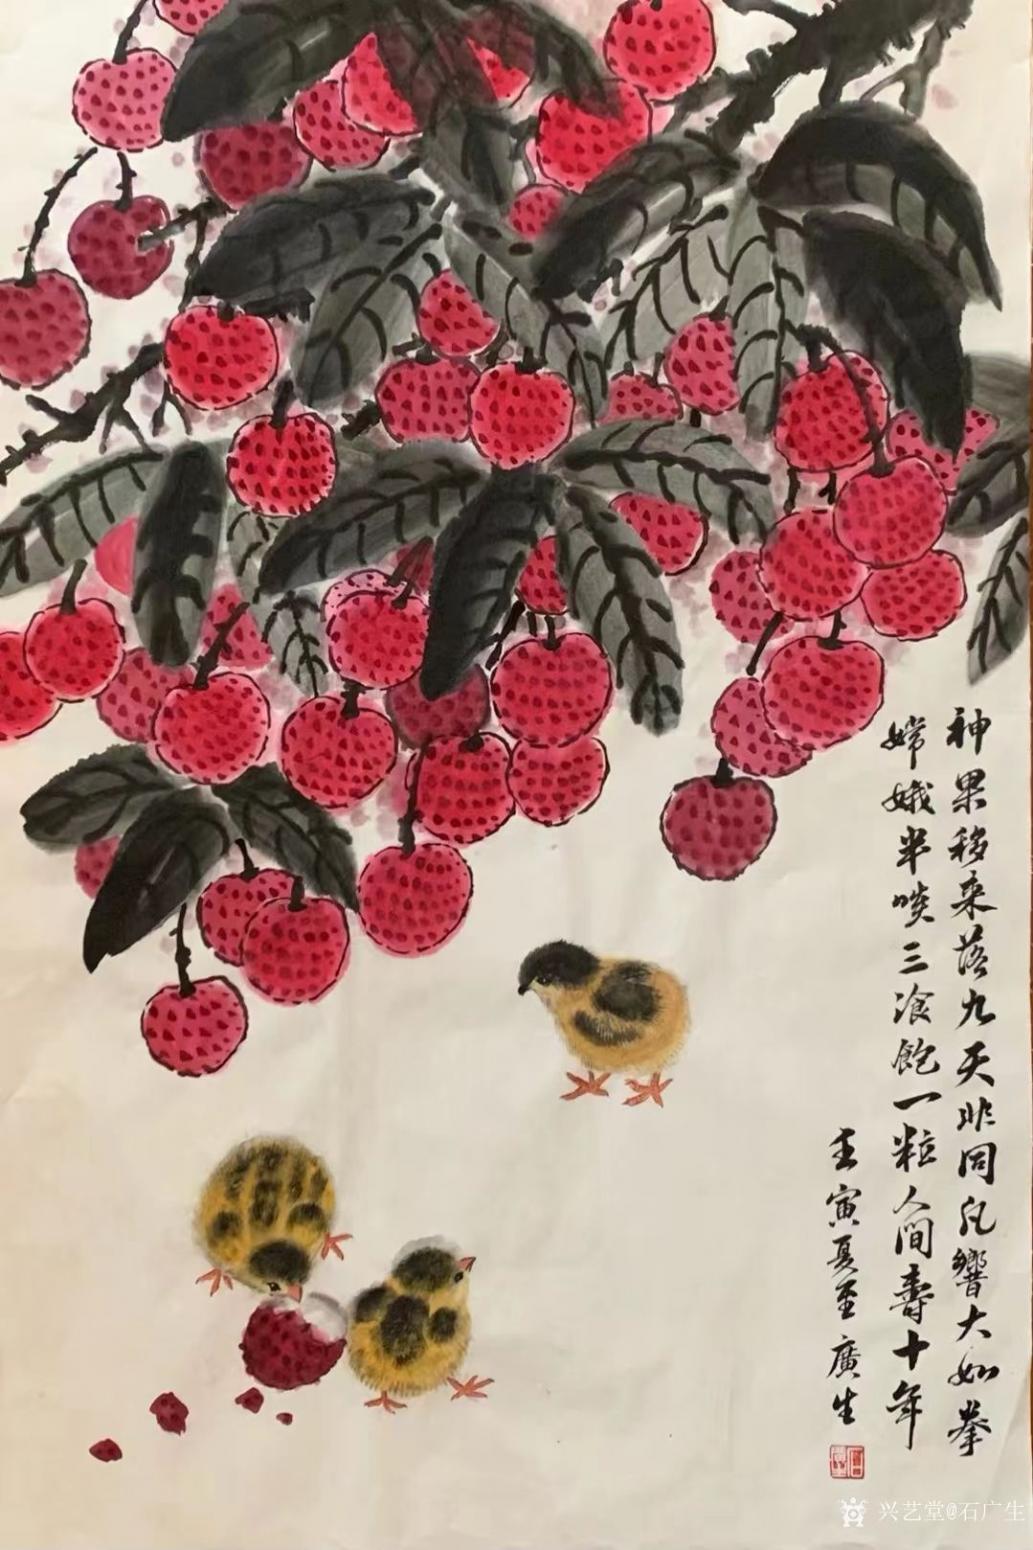 神果移来落九天非同凡響大如拳
嫦娥半啖三飡飽一粒人间壽十年
壬寅夏至廣生
兴艺堂@石广生